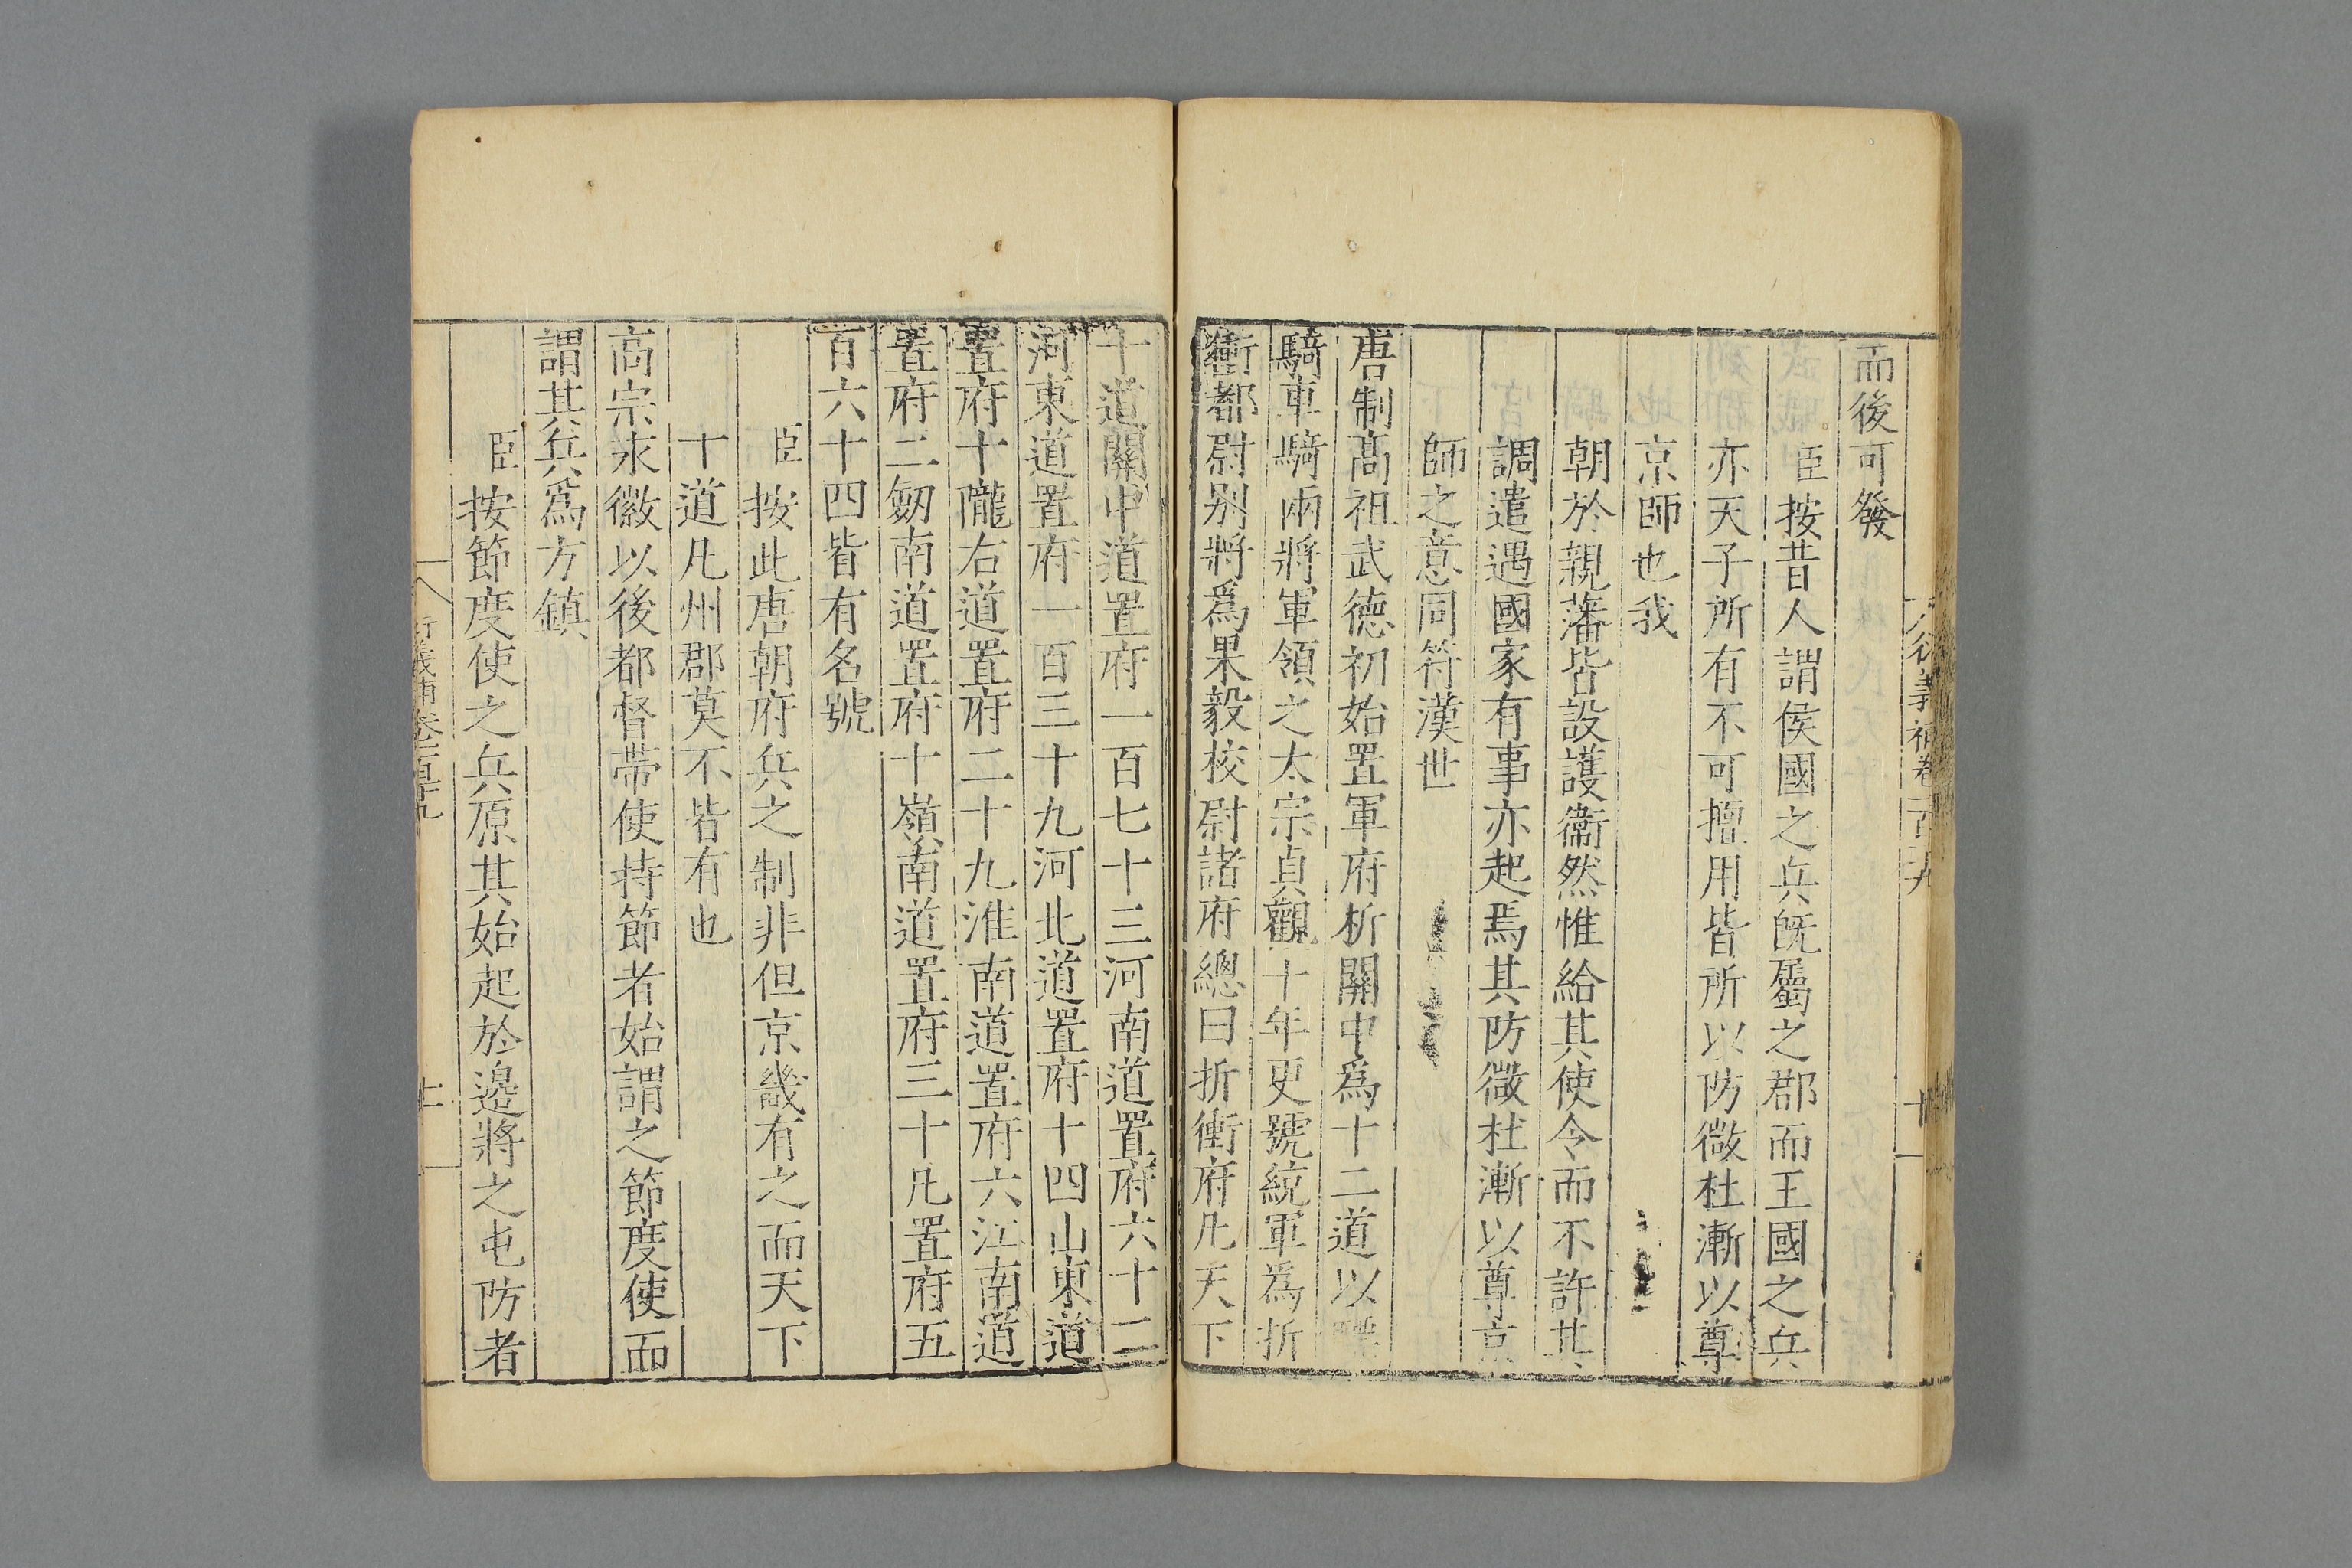 而後可發
臣按昔人謂侯國之兵既屬之郡而王國之兵
亦天子所有不可擅用皆所以防微杜漸以尊
京師也我
朝於親藩皆設護衞然惟給其使令而不許其
調遣遇國家有事亦起焉其防微杜漸以尊京
師之意同符漢世
唐制髙祖武德初始置軍府析關中爲十二道以
騎車騎兩將軍領之太宗貞觀十年更號統軍爲折
衝都尉别將爲果毅校尉諸府總曰折衝府凡天下
十道關中道置府一百七十三河南道置府六十二
河東道置府一百三十九河北道置府十四山東道
置府十隴右道置府二十九淮南道置府六江南道
置府二劒南道置府十嶺南道置府三十凡置府五
百六十四皆有名號
臣按此唐朝府兵之制非但京畿有之而天下
十道凡州郡莫不皆有也
高宗永徽以後都督帶使持節者始謂之節度使而
謂其兵爲方鎮
臣按節度使之兵原其始起於邊將之屯防者